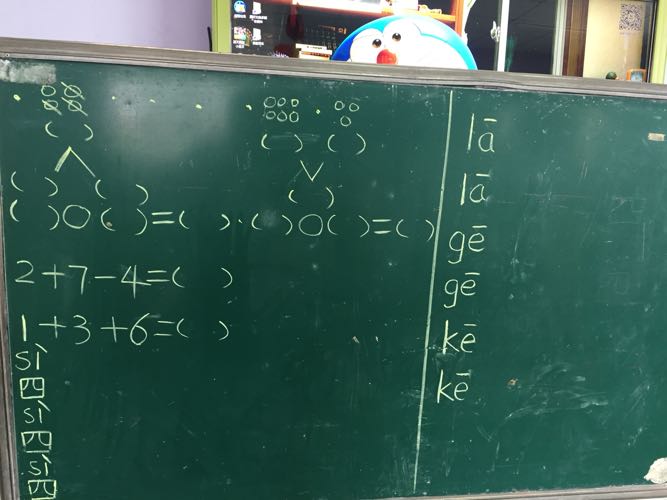 ( ) ( ) ( )
( ) ( ) ( )
( )○( )=( ) ( )○( )=( )
2+7-4=( )
1+3+6=( )
sì
四
sì
四
sì
四
lā
lā
gē
gē
kē
kē